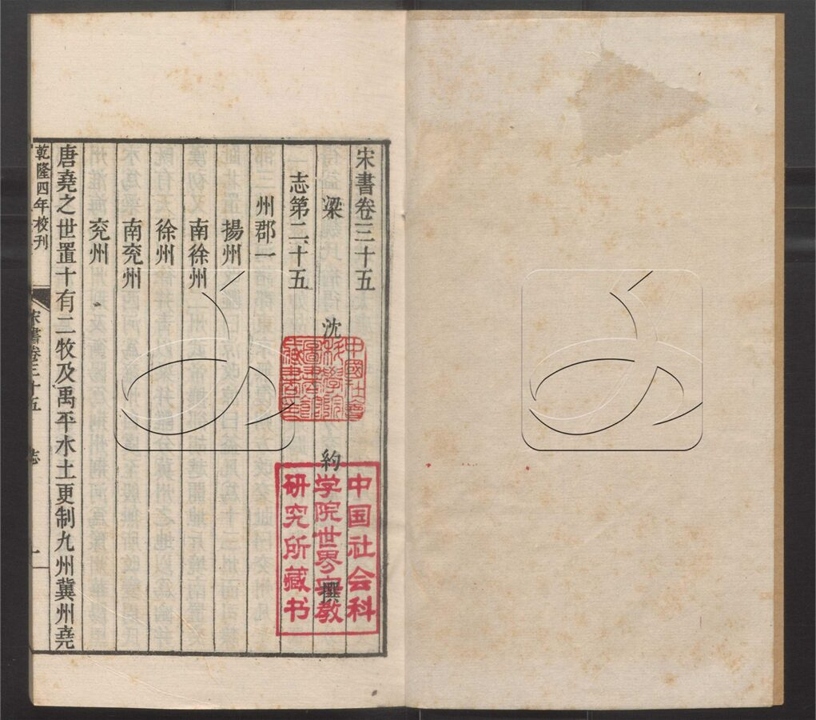 宋書卷三十五
梁 沈 約 撰
志第二十五
州郡一
揚州
南徐州
徐州
南兗州
兗州
唐堯之世置十有二牧及禹平水土更制九州冀州堯
乾隆四年校刊
宋書卷三十五 志 一
中国社会科
学院世界宗教
研究所藏书
中國社會
科學院
圖書館
藏書